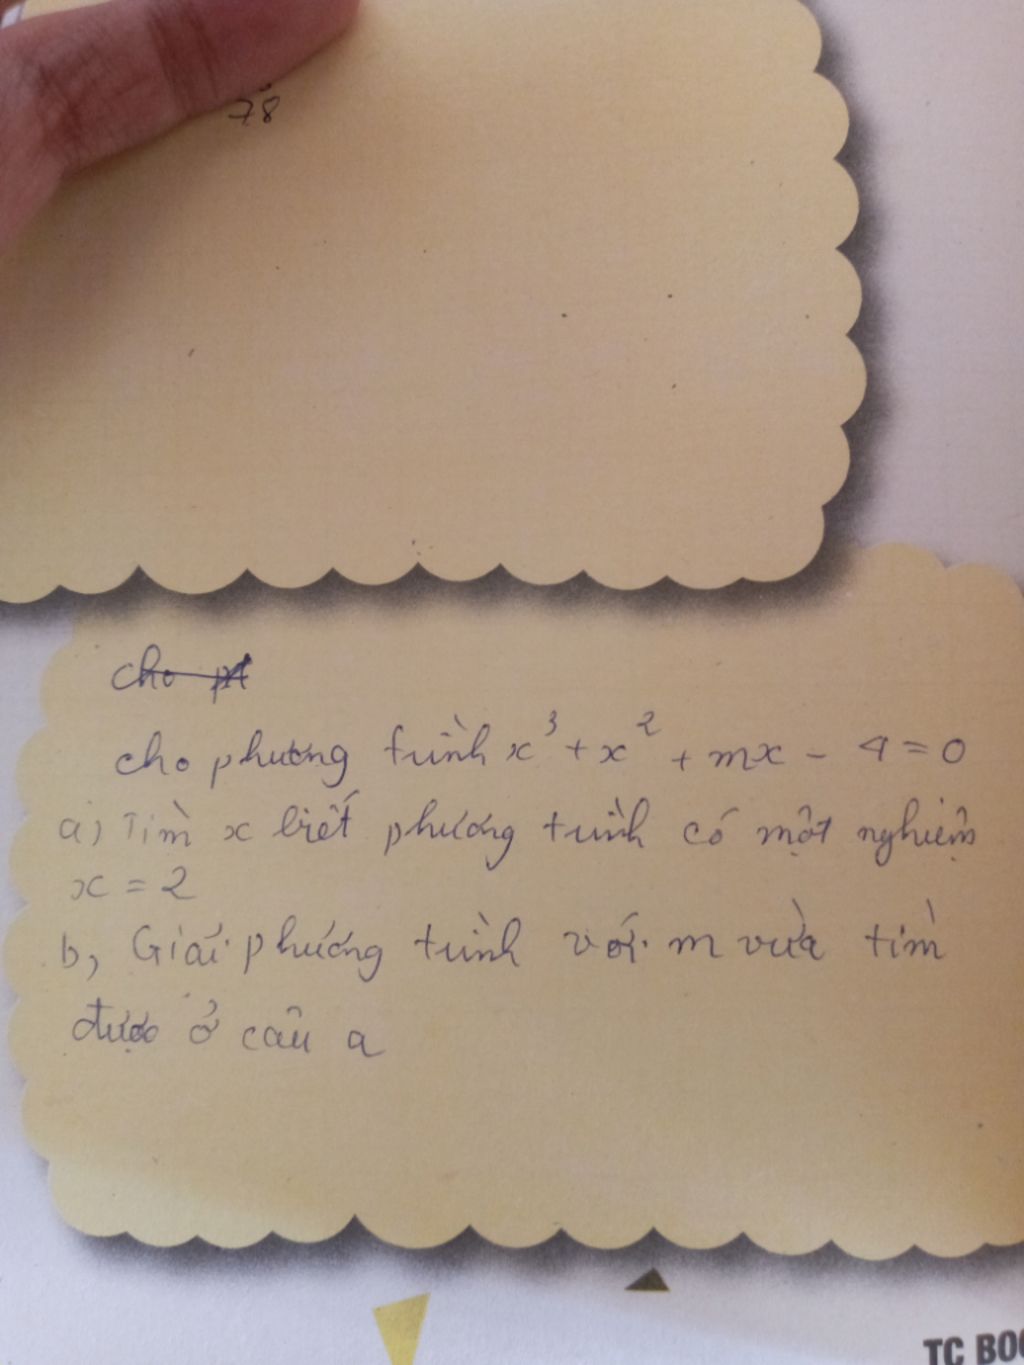 78
cho pt
cho phương trình x³ + x² + mx - 4 = 0
a) Tìm x biết phương trình có một nghiệm
x = 2
b, Giải phương trình với m vừa tìm
được ở câu a
TC BOO